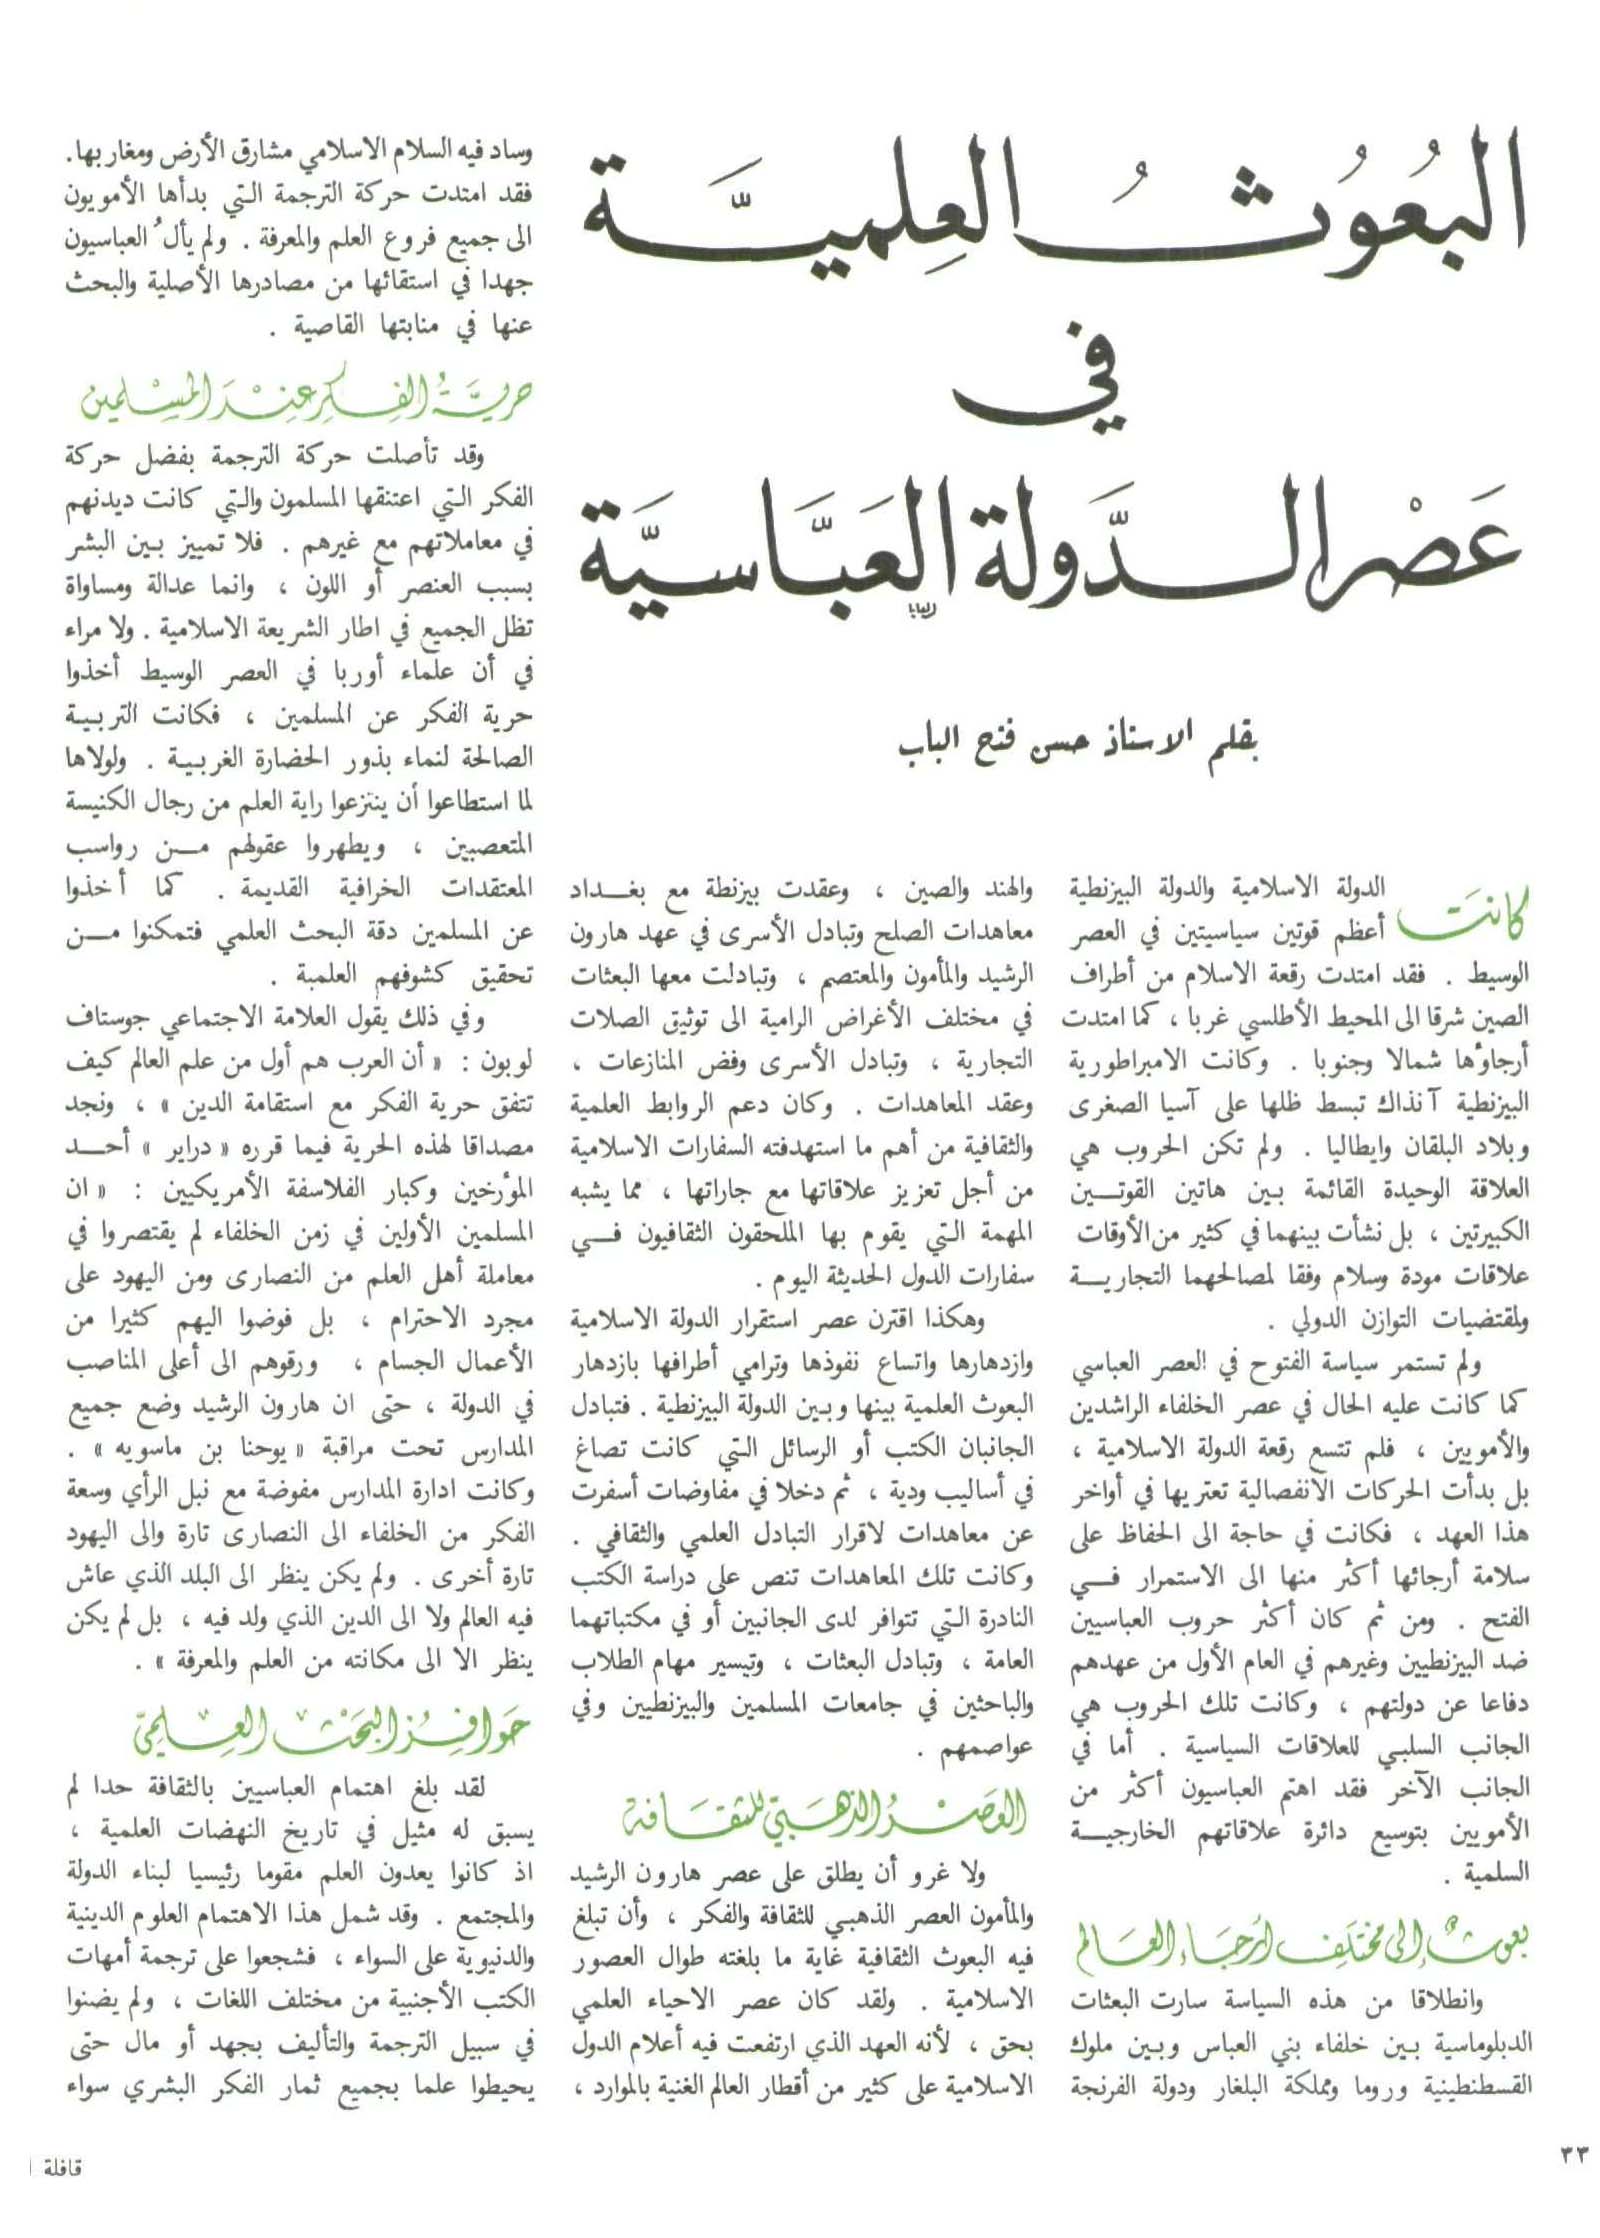 البُعُوثُ العِلميَّة
في
عَصْر الدَّولة العَبَّاسيَّة
بقلم الاستاذ حسن فتح الباب
كانَت الدولة الاسلامية والدولة البيزنطية
أعظم قوتين سياسيتين في العصر
الوسيط . فقد امتدت رقعة الاسلام من أطراف
الصين شرقا الى المحيط الأطلسي غربا ، كما امتدت
أرجاؤها شمالا وجنوبا . وكانت الامبراطورية
البيزنطية آنذاك تبسط ظلها على آسيا الصغرى
وبلاد البلقان وايطاليا . ولم تكن الحروب هي
العلاقة الوحيدة القائمة بين هاتين القوتين
الكبيرتين ، بل نشأت بينهما في كثير من الأوقات
علاقات مودة وسلام وفقا لمصالحهما التجارية
ولمقتضيات التوازن الدولي .
ولم تستمر سياسة الفتوح في العصر العباسي
كما كانت عليه الحال في عصر الخلفاء الراشدين
والأمويين ، فلم تتسع رقعة الدولة الاسلامية ،
بل بدأت الحركات الانفصالية تعتريها في أواخر
هذا العهد ، فكانت في حاجة الى الحفاظ على
سلامة أرجائها أكثر منها الى الاستمرار في
الفتح . ومن ثم كان أكثر حروب العباسيين
ضد البيزنطيين وغيرهم في العام الأول من عهدهم
دفاعا عن دولتهم ، وكانت تلك الحروب هي
الجانب السلبي للعلاقات السياسية . أما في
الجانب الآخر فقد اهتم العباسيون أكثر من
الأمويين بتوسيع دائرة علاقاتهم الخارجية
السلمية .
بعوثٌ إلى مختَلِف أرجَاء العَالم
وانطلاقا من هذه السياسة سارت البعثات
الدبلوماسية بين خلفاء بني العباس وبين ملوك
القسطنطينية وروما ومملكة البلغار ودولة الفرنجة
والهند والصين ، وعقدت بيزنطة مع بغداد
معاهدات الصلح وتبادل الأسرى في عهد هارون
الرشيد والمأمون والمعتصم ، وتبادلت معها البعثات
في مختلف الأغراض الرامية الى توثيق الصلات
التجارية ، وتبادل الأسرى وفض المنازعات ،
وعقد المعاهدات . وكان دعم الروابط العلمية
والثقافية من أهم ما استهدفته السفارات الاسلامية
من أجل تعزيز علاقاتها مع جاراتها ، مما يشبه
المهمة التي يقوم بها الملحقون الثقافيون في
سفارات الدول الحديثة اليوم .
وهكذا اقترن عصر استقرار الدولة الاسلامية
وازدهارها واتساع نفوذها وترامي أطرافها بازدهار
البعوث العلمية بينها وبين الدولة البيزنطية . فتبادل
الجانبان الكتب أو الرسائل التي كانت تصاغ
في أساليب ودية ، ثم دخلا في مفاوضات أسفرت
عن معاهدات لاقرار التبادل العلمي والثقافي .
وكانت تلك المعاهدات تنص على دراسة الكتب
النادرة التي تتوافر لدى الجانبين أو في مكتباتهما
العامة ، وتبادل البعثات ، وتيسير مهام الطلاب
والباحثين في جامعات المسلمين والبيزنطيين وفي
عواصمهم .
العَصْرُ الذهَبيّ للثقَافة
ولا غرو أن يطلق على عصر هارون الرشيد
والمأمون العصر الذهبي للثقافة والفكر ، وأن تبلغ
فيه البعوث الثقافية غاية ما بلغته طوال العصور
الاسلامية . ولقد كان عصر الاحياء العلمي
بحق ، لأنه العهد الذي ارتفعت فيه أعلام الدول
الاسلامية على كثير من أقطار العالم الغنية بالموارد ،
وساد فيه السلام الاسلامي مشارق الأرض ومغاربها.
فقد امتدت حركة الترجمة التي بدأها الأمويون
الى جميع فروع العلم والمعرفة . ولم يألُ العباسيون
جهدا في استقائها من مصادرها الأصلية والبحث
عنها في منابتها القاصية .
حريَّةُ الفِكرِ عِنْدَ المسْلِمين
وقد تأصلت حركة الترجمة بفضل حركة
الفكر التي اعتنقها المسلمون والتي كانت ديدنهم
في معاملاتهم مع غيرهم . فلا تمييز بين البشر
بسبب العنصر أو اللون ، وانما عدالة ومساواة
تظل الجميع في اطار الشريعة الاسلامية . ولا مراء
في أن علماء أوربا في العصر الوسيط أخذوا
حرية الفكر عن المسلمين ، فكانت التربية
الصالحة لنماء بذور الحضارة الغربية . ولولاها
لما استطاعوا أن ينتزعوا راية العلم من رجال الكنيسة
المتعصبين ، ويطهروا عقولهم من رواسب
المعتقدات الخرافية القديمة . كما أخذوا
عن المسلمين دقة البحث العلمي فتمكنوا من
تحقيق كشوفهم العلمية .
وفي ذلك يقول العلامة الاجتماعي جوستاف
لوبون : « أن العرب هم أول من علم العالم كيف
تتفق حرية الفكر مع استقامة الدين » ، ونجد
مصداقا لهذه الحرية فيما قرره « دراير » أحد
المؤرخين وكبار الفلاسفة الأمريكيين : « ان
المسلمين الأولين في زمن الخلفاء لم يقتصروا في
معاملة أهل العلم من النصارى ومن اليهود على
مجرد الاحترام ، بل فوضوا اليهم كثيرا من
الأعمال الجسام ، ورقوهم الى أعلى المناصب
في الدولة ، حتى ان هارون الرشيد وضع جميع
المدارس تحت مراقبة « يوحنا بن ماسويه » .
وكانت ادارة المدارس مفوضة مع نبل الرأي وسعة
الفكر من الخلفاء الى النصارى تارة والى اليهود
تارة أخرى . ولم يكن ينظر الى البلد الذي عاش
فيه العالم ولا الى الدين الذي ولد فيه ، بل لم يكن
ينظر الا الى مكانته من العلم والمعرفة » .
حَوافِزُ البَحْث العِلميّ
لقد بلغ اهتمام العباسيين بالثقافة حدا لم
يسبق له مثيل في تاريخ النهضات العلمية ،
اذ كانوا يعدون العلم مقوما رئيسيا لبناء الدولة
والمجتمع . وقد شمل هذا الاهتمام العلوم الدينية
والدنيوية على السواء ، فشجعوا على ترجمة أمهات
الكتب الأجنبية من مختلف اللغات ، ولم يضنوا
في سبيل الترجمة والتأليف بجهد أو مال حتى
يحيطوا علما بجميع ثمار الفكر البشري سواء
٣٣
قافلة ا